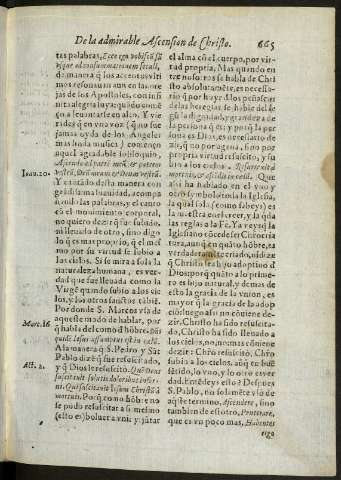 De la admirable Ascension de Christo. 665
tas palabras, Ecce ego vobiscũ sũ
vsque ad consummationem sæculi,
de manera q̃ los acentos vltimos
resonauan aun en las orejas
de los Apostoles, con infinita
alegria suya: quãdo comẽço
a leuantarse en alto. Y vierides
q̃ en viua voz (q̃ no fue
jamas oyda de los Angeles
mas linda musica) començo
aquel agradable soliloquio,
Ascendo ad patrẽ meũ, & patrem
vestrũ, Deũ meum & Deum vestrũ.
Ioan. 20.
Y cantado dasta manera con
grãdissima suauidad,
las palabras, y el canto
cõ el mouimiento corporal,
no quiero dezir q̃ fue subido,
ni lleuado de otro, sino digo
lo q̃ es mas proprio, q̃ el mesmo
por su virtud se subio a
los cielos. Si se mira a sola la
naturaleza humana, es verdad
que fue lleuada como la
Virgẽ quando subio a los cielos,
y los otros sanctos tãbiẽ.
Por donde S. Marcos vsa de
aqueste modo de hablar, porq̃
habla del como d' hõbre,
Marc. 16.
quide Iesus assumptus est in cælũ.
A la manera q̃ S. Pedro y Sãt
Pablo dizẽ q̃ fue resuscitado,
y q̃ Dios le resuscitò. Quẽ Deus
Act. 2.
suscitauit solutis doloribus inferni.
Qui suscitauit Iesum Christũ à
mortuis. Porq̃ como hõbre no
se pudo resuscitar a si mesmo
(esto es) boluer a vnir, y jũtar
el alma cõ el cuerpo, por virtud
propria. Mas quando entre
nosotros se habla de Christo
absolutamẽte, es necessario
q̃ por huyr d'los peñascos
de las heregias se hable desde
la dignidad, y grandeza
de la persona q̃ es: y porq̃ la persona
es Dios, es necessario dezir,
q̃ no por agena, sino por
propria virtud resuscito, y subio
a los cielos. Resurrexit à
mortuis, & ascẽdit in cælũ. Que
assi ha hablado en el vno y
otro symbolo toda la Iglesia,
la qual sola (como sabeys) es
la maestra en el creer, y la q̃ da
las reglas a la Fe. Ya veys q̃ la
Iglesia no cõcede ser Christo criatura,
aunq̃ en quãto hõbre, es
verdadera criatura, ni dize
q̃ Christo sea hijo adoptiuo d'
Dios: porq̃ quãto a lo primero
es hijo natural, y demas de
esto la gracia de la vnion, es
mayor q̃ la gracia de la adopcion:
luego assi no auemos de
dezir. Christo ha sido resuscitado,
Christo ha sido lleuado a
los cielos, no, no: mas conuiene
dezir: Christo resuscitò, Christo
subio a los cielos, aunq̃ en buẽ
sentido, lo vno, y lo otro es verdad.
Entẽdeys esto? Despues
S. Pablo, no solamẽte vso de
aqueste termino, Ascendere, sino
tambien de estotro, Penetrare,
que es vn poco mas, Habentes
ergo